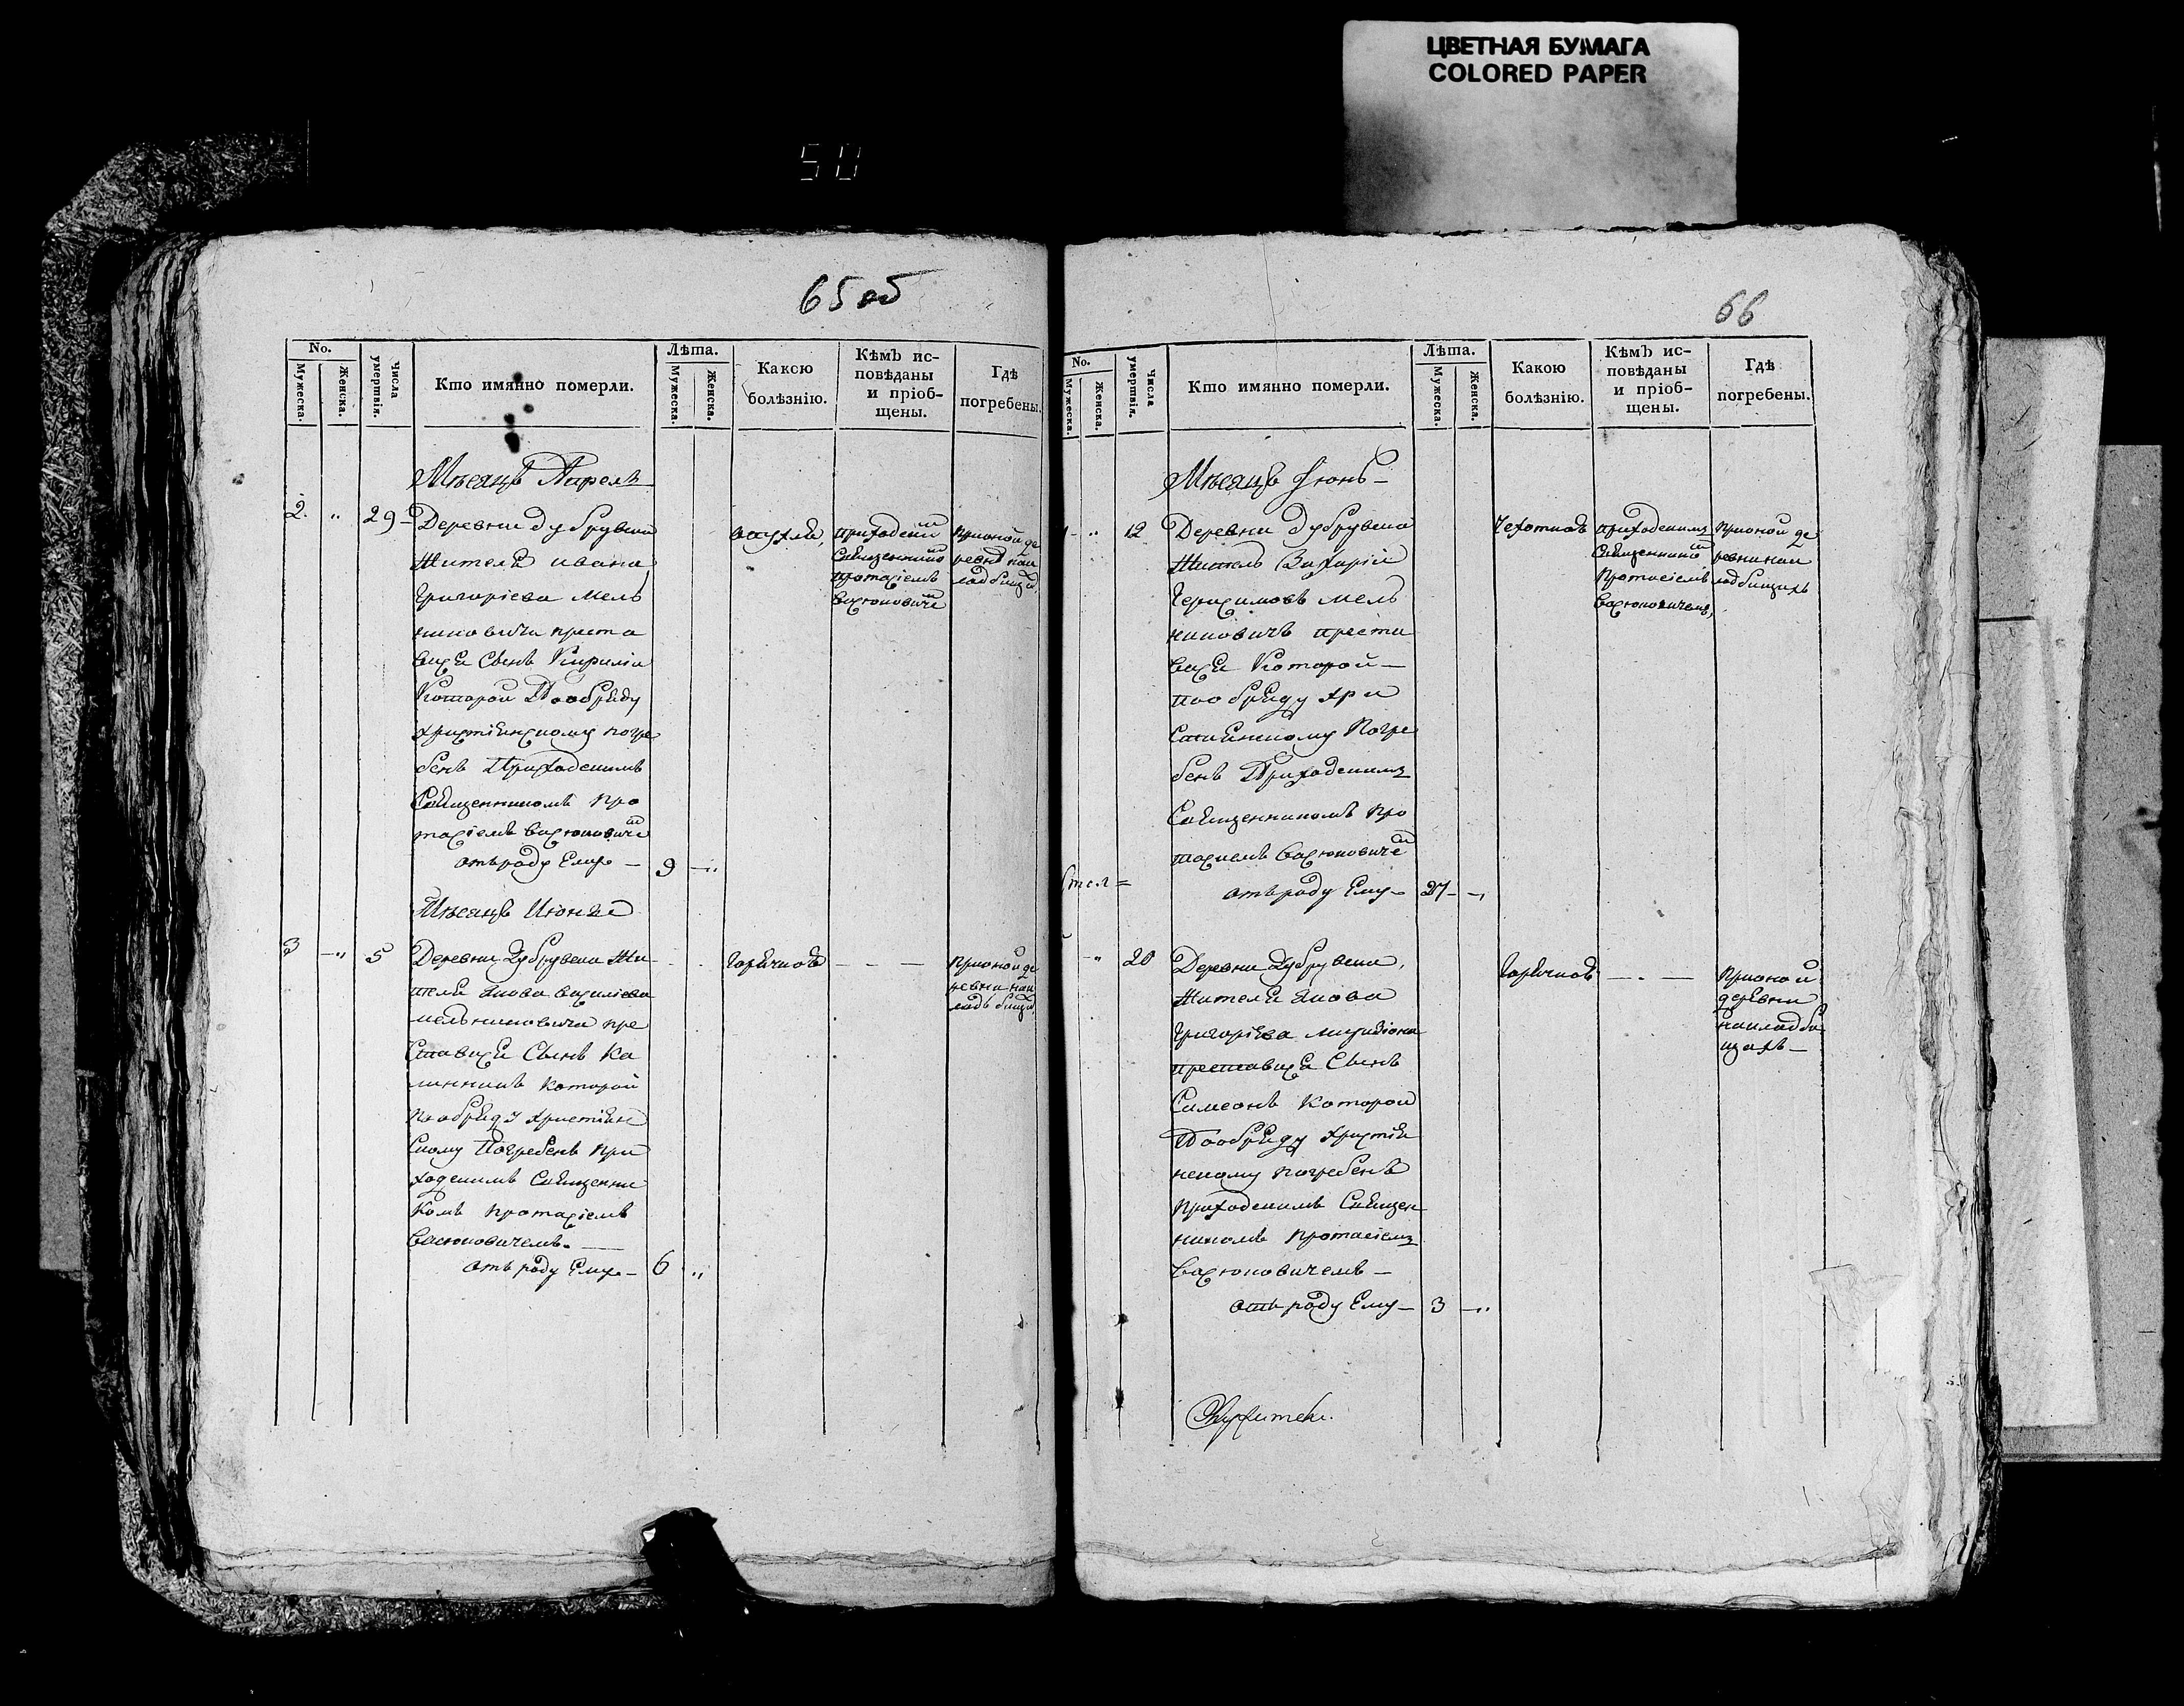 ЦВЕТНАЯ БУМАГА
COLORED PAPER
50
65 об
No.
Мужеска.
Женска.
Числа умертвія.
Кто имянно померли.
Лѣта.
Мужеска.
Женска.
Какою болѣзнію.
Кѣмъ исповѣданы и пріобщены.
Гдѣ погребены.
Мѣсяцъ Апрель
2. " 29
Деревни дубрувки
жителя ивана
Григоріева мель
никовича преста
вися Сынъ Кирила
Которой По обряду
христіянскому погре
бенъ Приходскимъ
Священникомъ про
тасіемъ васюковиче
отъ роду Ему — 9 — "
приходски
Священнико
протасіемъ
васюковиче
при оной де
ревнѣ на к
ладбищѣ
Мѣсяцъ Июнь
3 — " 5
Деревни Дубрувки Жи
теля Якова василіева
мельниковича пре
ставися Сынъ Ка
линникъ которой
по обряду христіян
скому Погребенъ при
ходскимъ Священни
комъ протасіемъ
васюковичемъ. —
отъ роду Ему — 6 "
горячкою — —
при оной де
ревни на к
ладъбищѣ
66
No.
Мужеска.
Женска.
Числа умертвія.
Кто имянно померли.
Лѣта.
Мужеска.
Женска.
Какою болѣзнію.
Кѣмъ исповѣданы и пріобщены.
Гдѣ погребены.
Мѣсяцъ Июнь —
" 12
Деревни дубрувки
Житель Захарій
Герасимовъ мель
никовичъ преста
вися Которой —
по обряду хри
стиянскому Погре
бенъ Приходскимъ
Священникомъ про
тасиемъ васюковиче
отъ роду Ему — 27 —
Чехоткою
приходскимъ
Священнико
Протасіемъ
васюковичемъ,
при оной де
ревни на к
ладбищахъ
— " 20
Деревни Дубрувки,
жителя Якова
Григоріева
преставися Сынъ
Симеонъ Которой
По обряду христія
нскому погребенъ
Приходскимъ Священ
никомъ протасіемъ
васюковичемъ —
отъ роду Ему — 3 — "
горячкою — —
при оной
деревни
на кладби
щахъ —